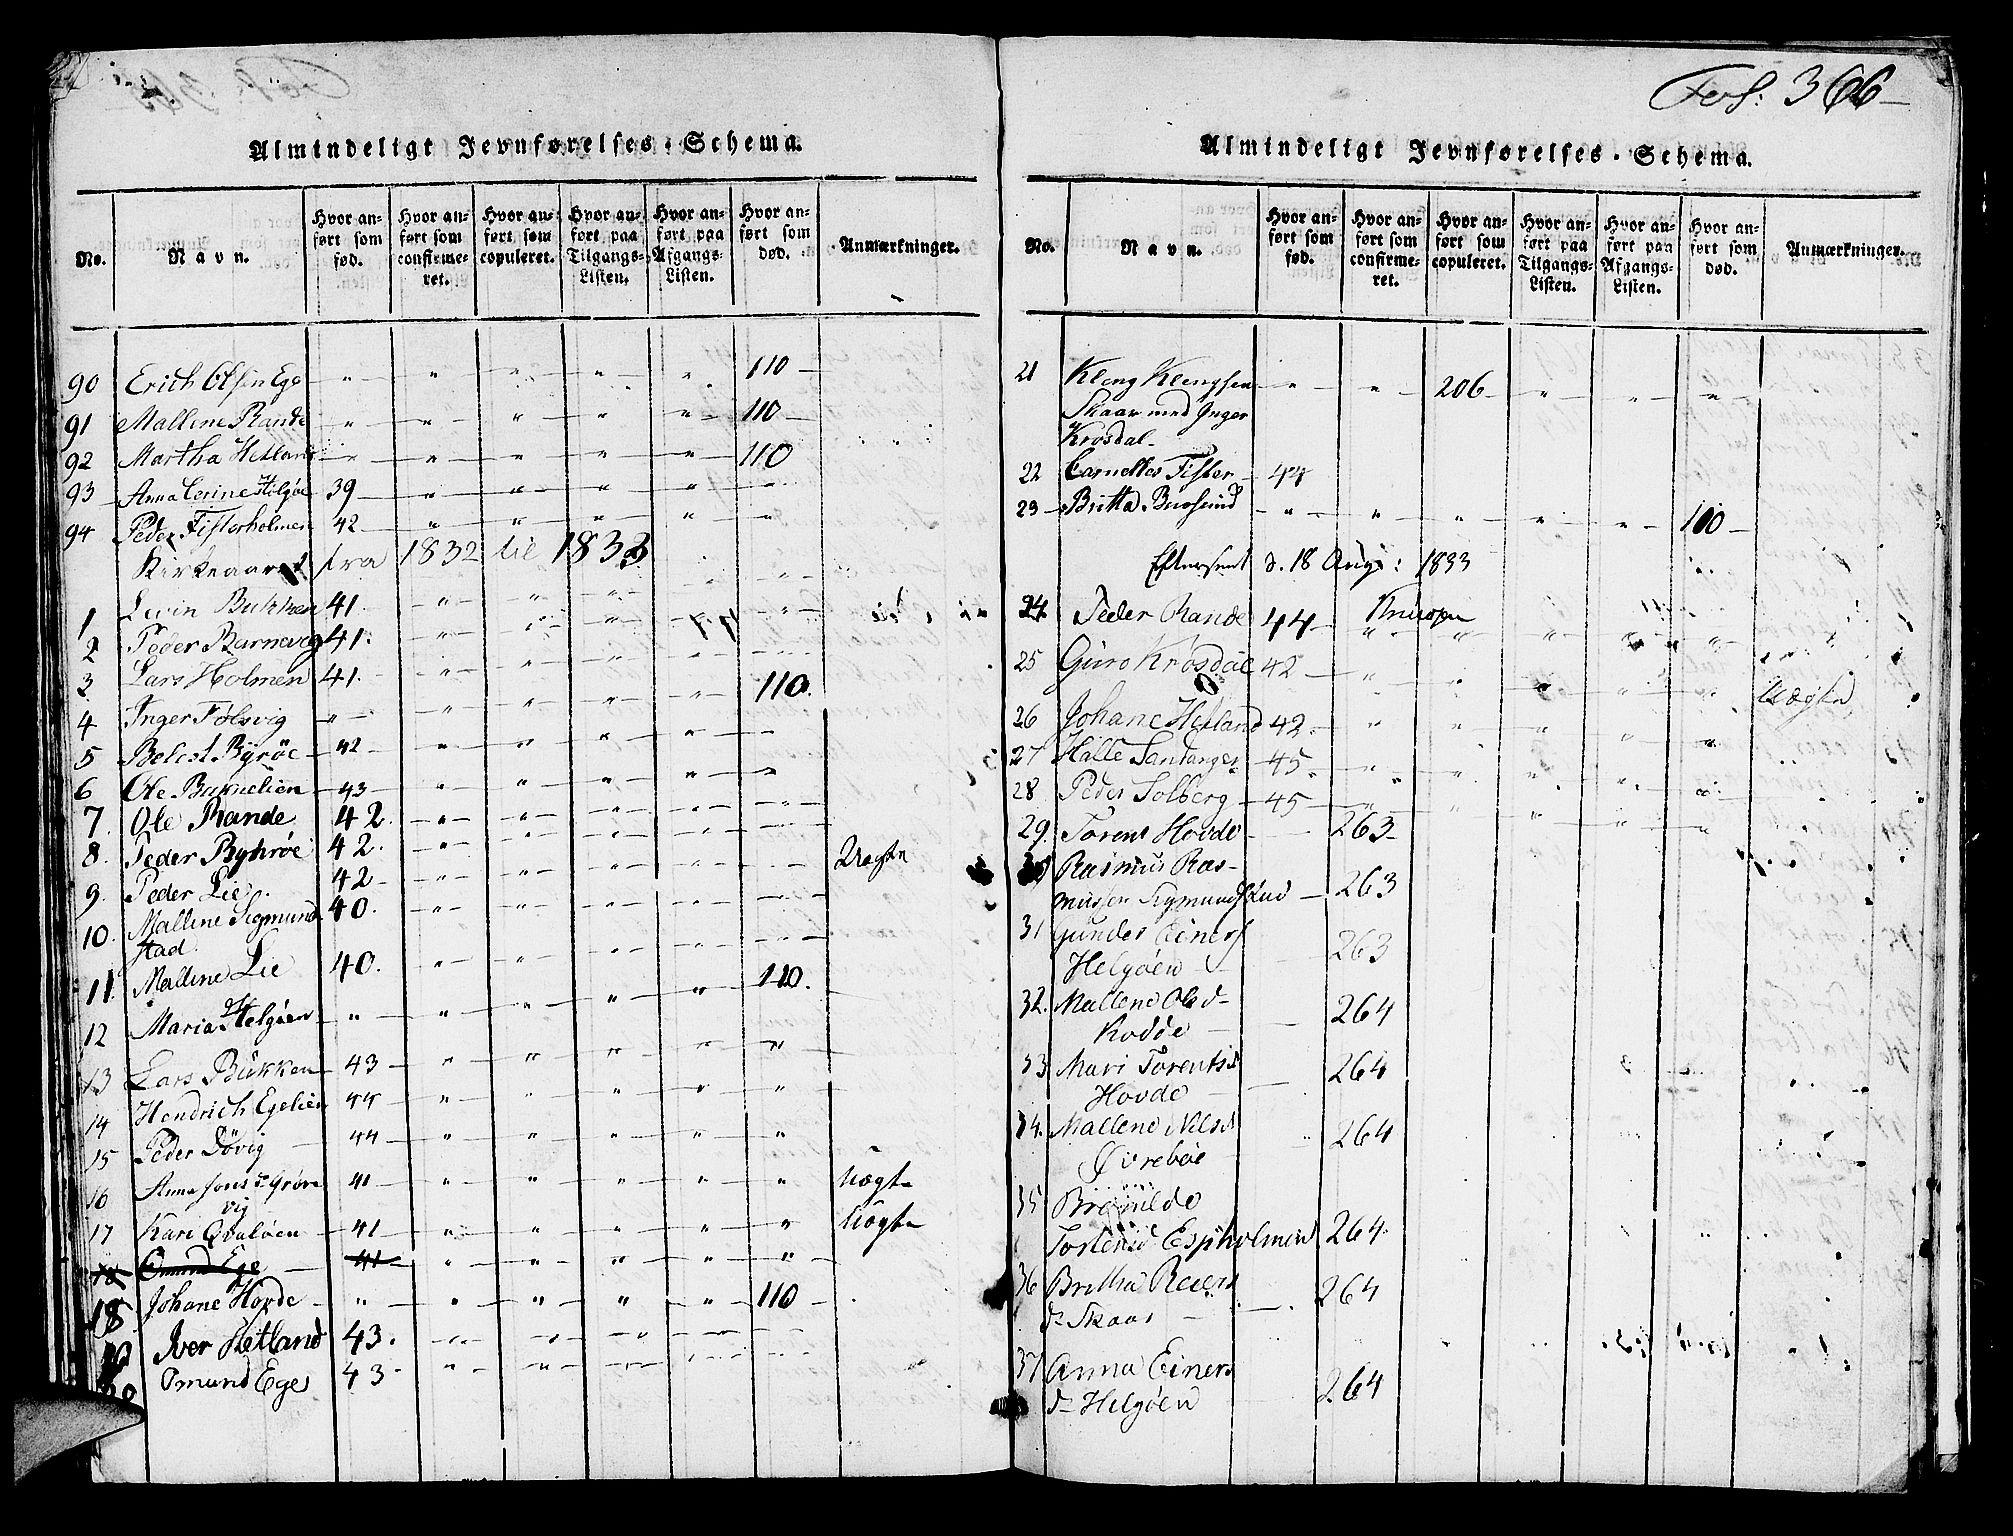 Almindeligt Jevnførelses-Schema.
No. | Navn. | Hvor anført som fød. | Hvor anført som confirmeret. | Hvor anført som copuleret. | Hvor anført paa Tilgangs-Listen. | Hvor anført paa Afgangs-Listen. | Hvor anført som død. | Anmærkninger.
90 Erich Olsen Ege " " " " " 110
91 Mallene Rande " " " " " 110
92 Martha Hetland " " " " " 110
93 Anna Cerine Helgøe 39 " " " " "
94 Peder Fisterholmen 42 " " " " "
Kirkeaaret fra 1832 til 1833
1 Levin Bukken 41 " " " "
2 Peder Barnevig 41. " " " "
3 Lars Holmen 41. " " " "
4 Inger Følsvig " " " " " 110.
5 Belest Byrøe 42 " " " " "
6 Ole Barnelien 43 " " " " "
7. Ole Rande 42. " " " " "
8. Peder Byhrøe 42. " " " " "
9. Peder Lie. 42 " " " " " Uægte
10. Mallene Sigmund 40. " " " " "
stad
11. Mallene Lie 40. " " " " "
12 Maria Helgøen " " " " " 110.
13 Lars Bükken 43 " " " " "
14 Hendrich Egelien 44 " " " " "
15 Peder Dövig 44 " " " " "
16 Anna Jons d. Grøre 41 " " " " " Uægte
vig
17 Kari Qvaløen 41 " " " " " Uægte
18 Omund Ege 41 " " " " "
18 Johane Hovde " " " " " 110
19 Iver Hetland 43. " " " " "
20 Omund Ege 43 " " " " "
Fol: 366
Almindeligt Jevnførelses-Schema.
No. | Navn. | Hvor anført som fød. | Hvor anført som confirmeret. | Hvor anført som copuleret. | Hvor anført paa Tilgangs-Listen. | Hvor anført paa Afgangs-Listen. | Hvor anført som død. | Anmærkninger.
21 Kleng Klengsen " " 206 " " "
Skaar med Inger
Krosdal
22 Cornelles Fister 44
23 Britta " " " " " 110
Eftersent d. 18 Aug: 1833
24 Peder Rande 44 " " " " "
25 Guro Krosdal 42 " " " " "
26 Johane Hetland 42 " " " " " Uægte
27 Halle Santanger 45 " " " " "
28 Peder Solberg 45 " " " " "
29. Torens Hovde 263
Rasmus Ras-
mussen Sigmundstad 263
31 Gunder Einers 263
Helgøen
32. Mallene Olsd 264
33 Mari Torentsd 264
Hovde
34. Mallene Nilsd 264
Øvrebøe
35 Bromilde
Tostensd Espholmen 264.
36 Britha Reiers 264
d. Skaar
37 Anna Einers
d. Helgøen 264